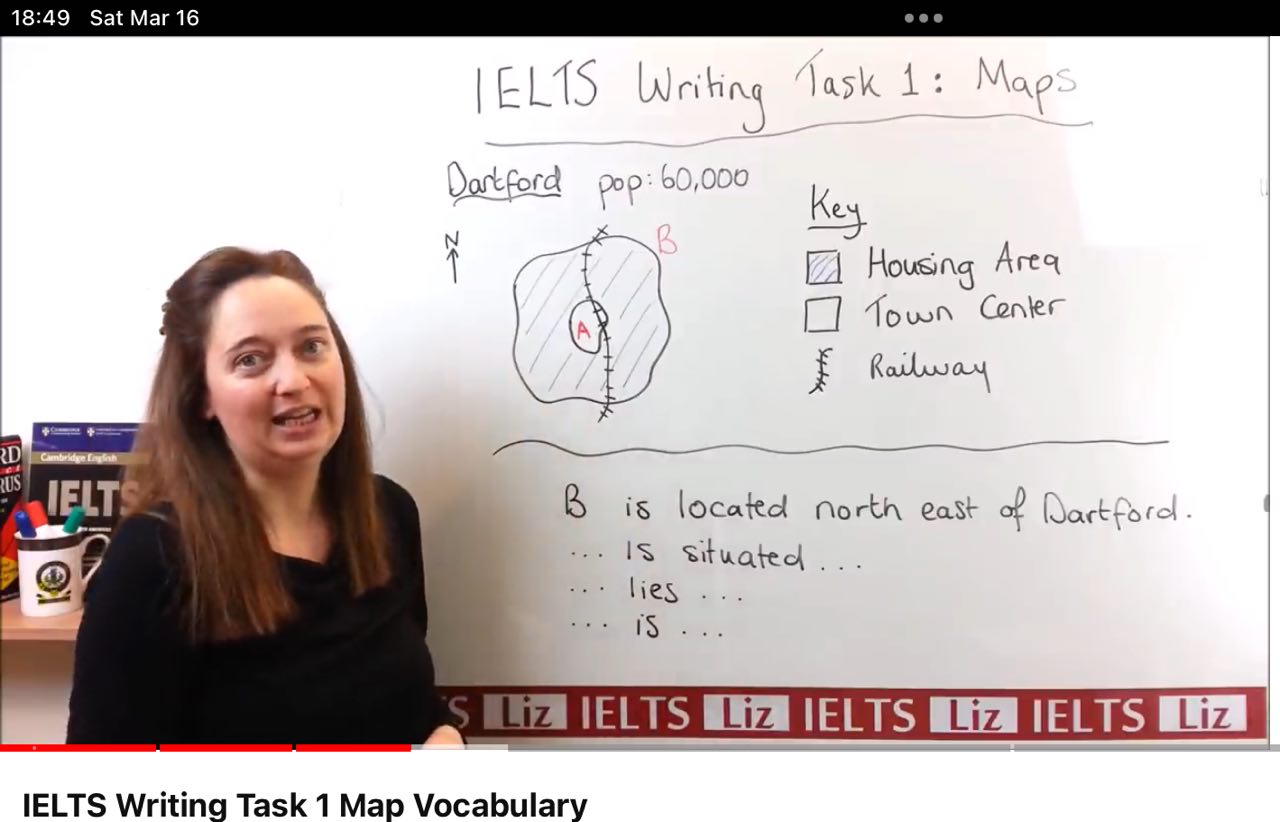 18:49 Sat Mar 16
IELTS Writing Task 1: Maps
Dartford pop: 60,000
N
B
A
Key
Housing Area
Town Center
Railway
B is located north east of Dartford.
... is situated ...
... lies ...
... is ...
RD
RUS
Cambridge English
IELTS
S Liz IELTS Liz IELTS Liz IELTS Liz
IELTS Writing Task 1 Map Vocabulary